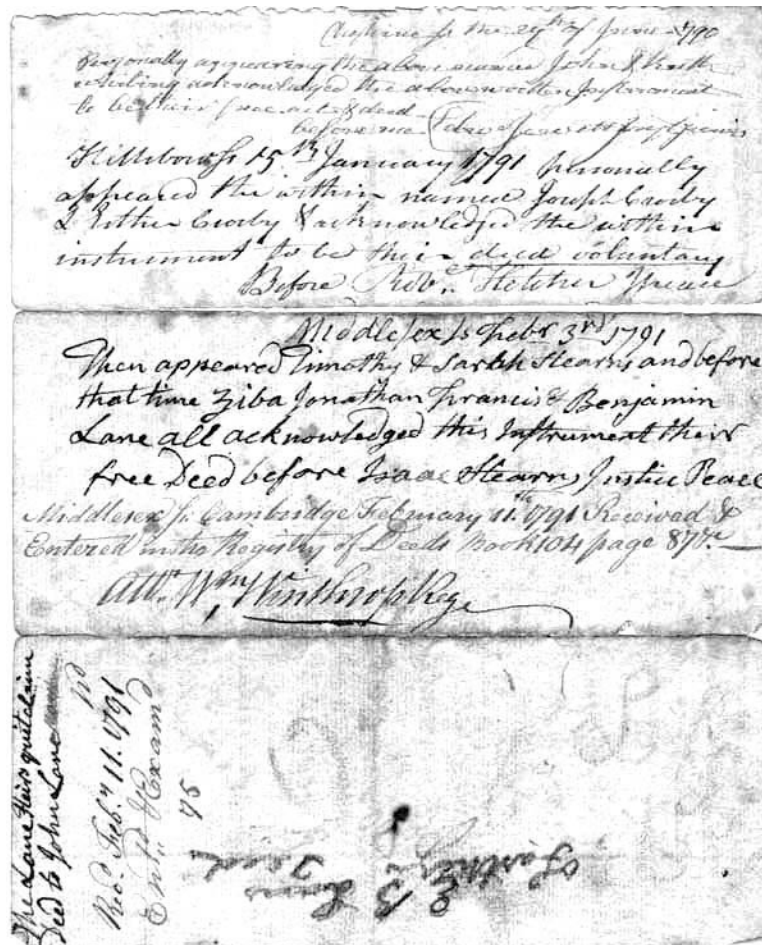 the 29th of 1790
Personally appearing the above named John & Ruth
Whiting acknowledged the above written Instrument
to be their free act & deed
before me
Hillsborough Ss 15th January 1791 personally
appeared the within named Joseph Crosby
& Esther Crosby & acknowledged the within
instrument to be their deed voluntary
Before Robt. Fletcher Jus peace
Middlesex Ss Febr 3rd 1791
Then appeared Timothy & Sarah Stearns and before
that time Ziba Jonathan Francis & Benjamin
Lane all acknowledged this Instrument their
free Deed before Isaac Stearns Justice Peace
Middlesex Ss. Cambridge February 11th. 1791 Received &
Entered in the Registry of Deeds Book 104 page 87
Attr. Wm Winthrop Reg
The Lane Heirs quitclaim
Deed to John Lane
Recd. Feb.y 11. 1791
Entd. & Examd